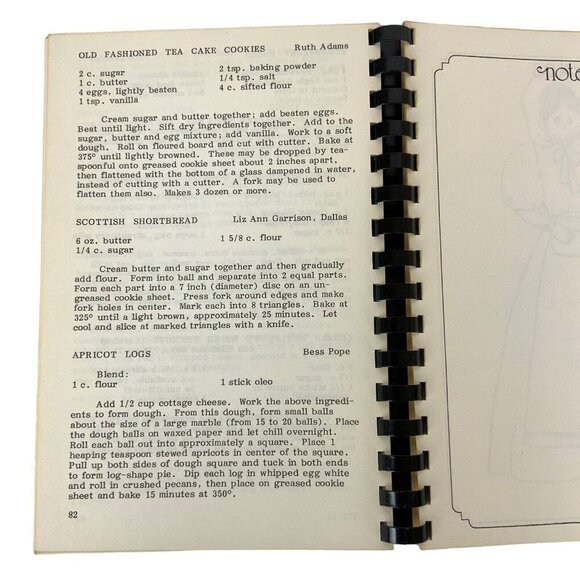 OLD FASHIONED TEA CAKE COOKIES Ruth Adams
2 c. sugar 2 tsp. baking powder
1 c. butter 1/4 tsp. salt
4 eggs, lightly beaten 4 c. sifted flour
1 tsp. vanilla
Cream sugar and butter together; add beaten eggs.
Beat until light. Sift dry ingredients together. Add to the
sugar, butter and egg mixture; add vanilla. Work to a soft
dough. Roll on floured board and cut with cutter. Bake at
375° until lightly browned. These may be dropped by tea-
spoonful onto greased cookie sheet about 2 inches apart,
then flattened with the bottom of a glass dampened in water,
instead of cutting with a cutter. A fork may be used to
flatten them also. Makes 3 dozen or more.
SCOTTISH SHORTBREAD Liz Ann Garrison, Dallas
6 oz. butter 1 5/8 c. flour
1/4 c. sugar
Cream butter and sugar together and then gradually
add flour. Form into ball and separate into 2 equal parts.
Form each part into a 7 inch (diameter) disc on an un-
greased cookie sheet. Press fork around edges and make
fork holes in center. Mark each into 8 triangles. Bake at
325° until a light brown, approximately 25 minutes. Let
cool and slice at marked triangles with a knife.
APRICOT LOGS Bess Pope
Blend:
1 c. flour 1 stick oleo
Add 1/2 cup cottage cheese. Work the above ingredi-
ents to form dough. From this dough, form small balls
about the size of a large marble (from 15 to 20 balls). Place
the dough balls on waxed paper and let chill overnight.
Roll each ball out into approximately a square. Place 1
heaping teaspoon stewed apricots in center of the square.
Pull up both sides of dough square and tuck in both ends
to form log-shape pie. Dip each log in whipped egg white
and roll in crushed pecans, then place on greased cookie
sheet and bake 15 minutes at 350°.
82
note